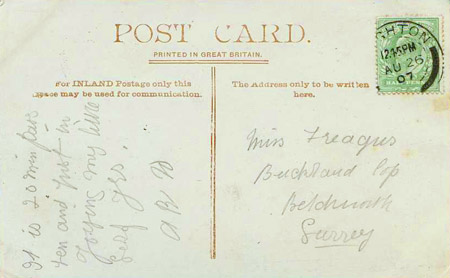 POST CARD.
PRINTED IN GREAT BRITAIN.
For INLAND Postage only this
space may be used for communication.
The Address only to be written
here.
GHTON
12.45PM
AU 26
07
It is 20 min past
ten and just in
my
yrs.
A R D
Miss Treagus
Buckland Cop
Betchworth
Surrey